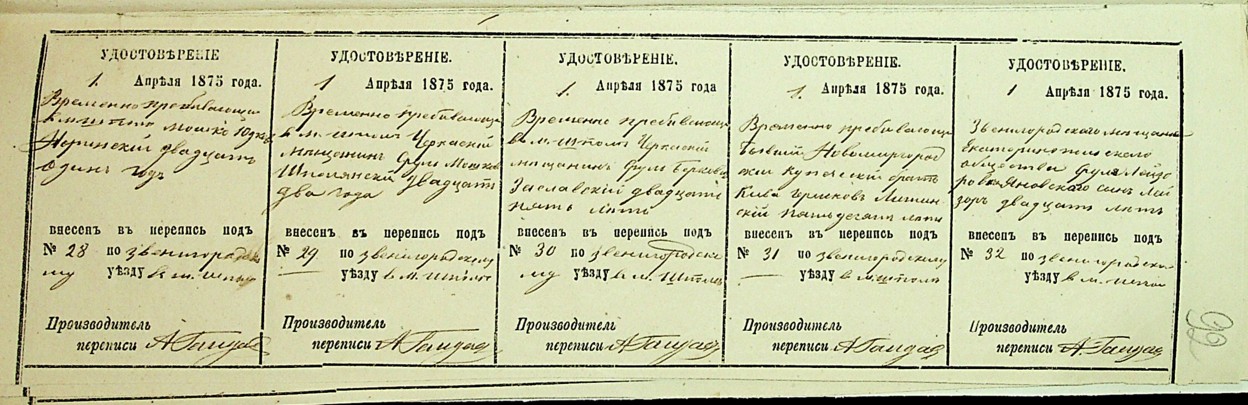 УДОСТОВѢРЕНІЕ
1. Апрѣля 1875 года.
Временно пребывающій
Мошко
двадцать
Одинъ годъ
внесенъ въ перепись подъ
№ 28 по звенигородско
му уѣзду в м.
Производитель
переписи
УДОСТОВѢРЕНІЕ.
1 Апрѣля 1875 года.
Временно пребывающій
в м. Черкаскій
мѣщанинъ Сруль Мошков
Шполянскій двадцать
два года
внесенъ въ перепись подъ
№ 29 по звенигородскому
уѣзду в м. Шпола
Производитель
переписи
УДОСТОВѢРЕНІЕ.
1. Апрѣля 1875 года
Временно пребывающій
в м. Черкаскій
мѣщанинъ Сруль Берковъ
Заславскій двадцать
пять лѣтъ
внесенъ въ перепись подъ
№ 30 по звенигородско
му уѣзду в м. Шпола
Производитель
переписи
УДОСТОВѢРЕНІЕ.
1. Апрѣля 1875 года.
Временно пребывающій
бывшій Новомиргород
скій купеческій братъ
Кива
скій пятьдесятъ лѣтъ
внесенъ въ перепись подъ
№ 31 по звенигородскому
уѣзду в м. Шпола
Производитель
переписи
УДОСТОВѢРЕНІЕ.
1 Апрѣля 1875 года.
Звенигородскаго мѣщанина
Екатеринопольскаго
общества Сруля Лейзо
рова Яновскаго сынъ Лей
зоръ двадцать лѣтъ
внесенъ въ перепись подъ
№ 32 по звенигородско
уѣзду в м.
Производитель
переписи